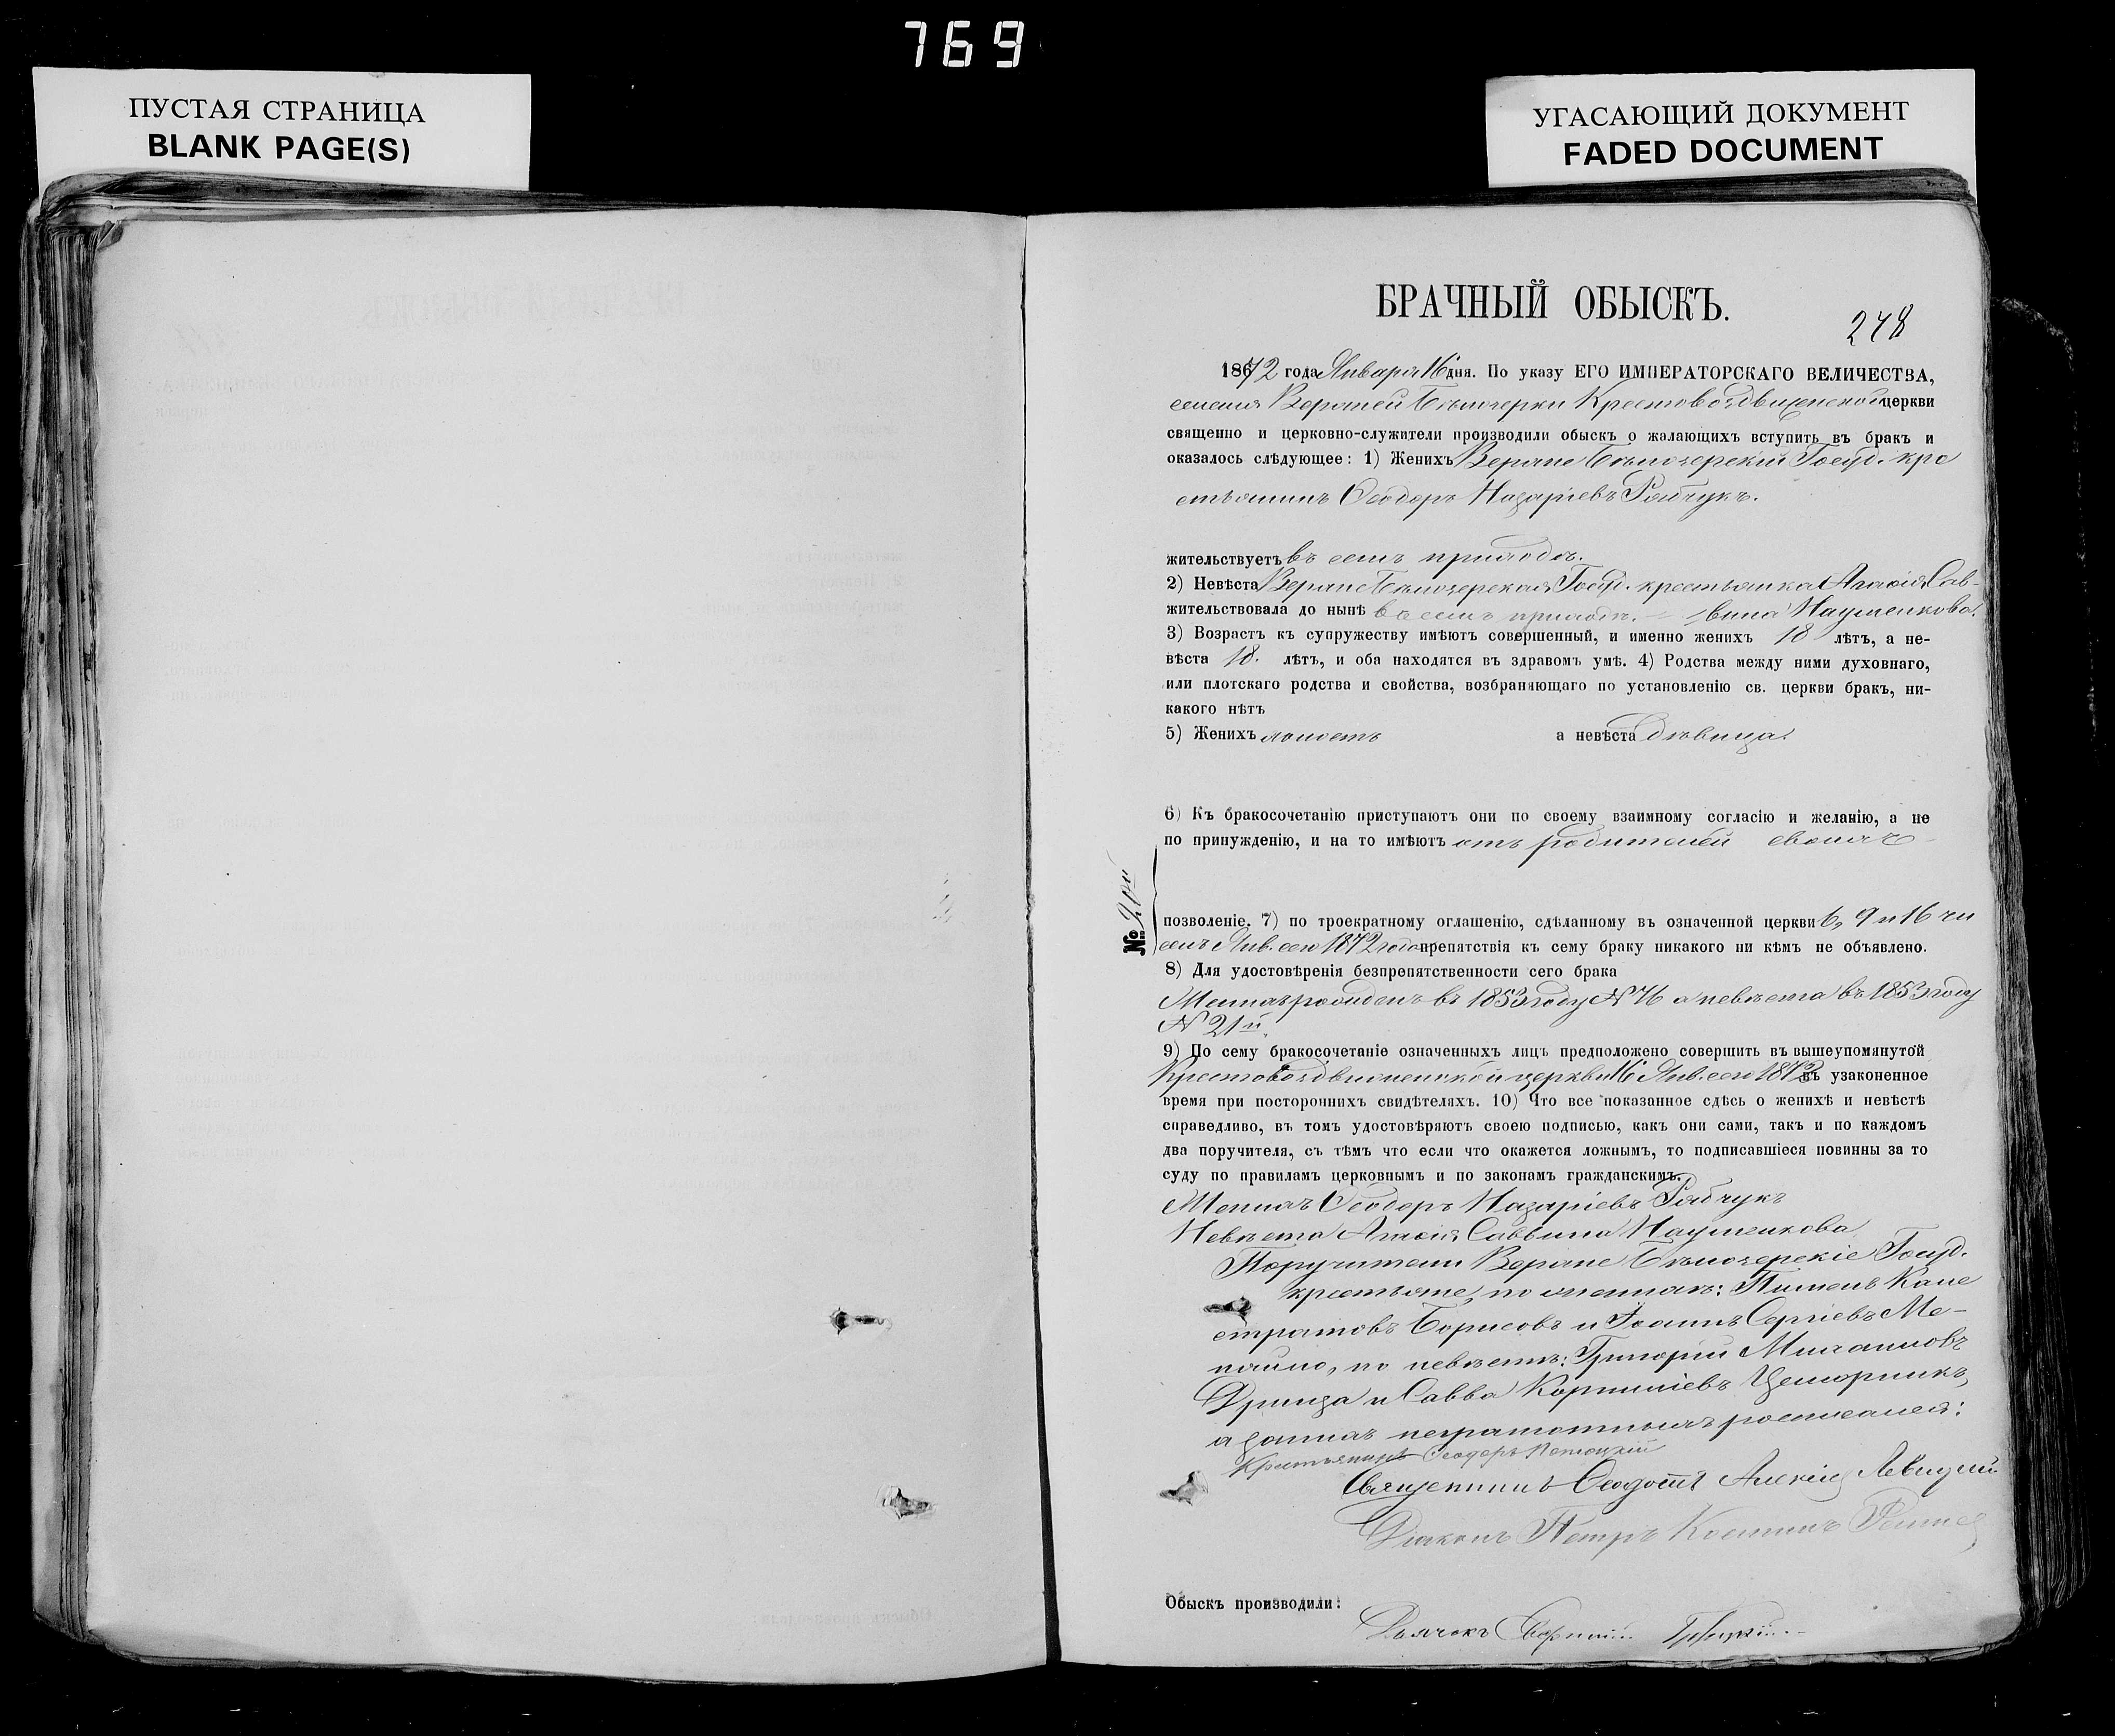 769
ПУСТАЯ СТРАНИЦА
BLANK PAGE(S)
УГАСАЮЩИЙ ДОКУМЕНТ
FADED DOCUMENT
БРАЧНЫЙ ОБЫСКЪ.
248
1872 года Января 16 дня. По указу ЕГО ИМПЕРАТОРСКАГО ВЕЛИЧЕСТВА,
селенія Верхней Бѣлозерки Крестовоздвиженской церкви
священно и церковно-служители производили обыскъ о жалающихъ вступить въ бракъ и
оказалось слѣдующее: 1) Женихъ Верхне Бѣлозерскій Госуд. кре
стьянинъ Ѳеодоръ Назаріевъ Рябчукъ.
жительствуетъ въ семъ приходѣ.
2) Невѣста Верхне Бѣлозерская Госуд. крестьянка Агафія Сав-
жительствовала до нынѣ въ семъ приходѣ. – вина Науменкова.
3) Возрастъ къ супружеству имѣютъ совершенный, и именно женихъ 18 лѣтъ, а не-
вѣста 18. лѣтъ, и оба находятся въ здравомъ умѣ. 4) Родства между ними духовнаго,
или плотскаго родства и свойства, возбраняющаго по установленію св. церкви бракъ, ни-
какого нѣтъ
5) Женихъ холостъ а невѣста дѣвица.
6) Къ бракосочетанію приступаютъ они по своему взаимному согласію и желанію, а не
по принужденію, и на то имѣютъ отъ родителей своихъ
№
позволеніе. 7) по троекратному оглашенію, сдѣланному въ означенной церкви 6, 9 и 16 чи
селъ Янв. сего 1872 года препятствія къ сему браку никакого ни кѣмъ не объявлено.
8) Для удостовѣренія безпрепятственности сего брака
Женихъ рожденъ въ 1853 году № 76 а невѣста въ 1853 году
№ 21й.
9) По сему бракосочетаніе означенныхъ лицъ предположено совершить въ вышеупомянутой
Крестовоздвиженской церкви 16 Янв. сего 1872 въ узаконенное
время при постороннихъ свидѣтеляхъ. 10) Что все показанное сдѣсь о женихѣ и невѣстѣ
справедливо, въ томъ удостовѣряютъ своею подписью, какъ они сами, такъ и по каждомъ
два поручителя, съ тѣмъ что если что окажется ложнымъ, то подписавшіеся повинны за то
суду по правиламъ церковнымъ и по законамъ гражданскимъ.
Женихъ Ѳеодоръ Назаріевъ Рябчукъ
Невѣста Агафія Саввина Науменкова
Поручители Верхне Бѣлозерскіе Госуд.
крестьяне, по женихѣ: Пименъ Кали
стратовъ Борисовъ и Іоаннъ Сергіевъ
по невѣстѣ: Григорій Михаиловъ
и Савва Корниліевъ
а за нихъ неграмотныхъ росписался:
Крестьянинъ Ѳеодоръ
Священникъ Ѳеодотъ Алексіевъ Левицкій
Діаконъ Петръ Косминъ
Обыскъ производили:
Дьячокъ